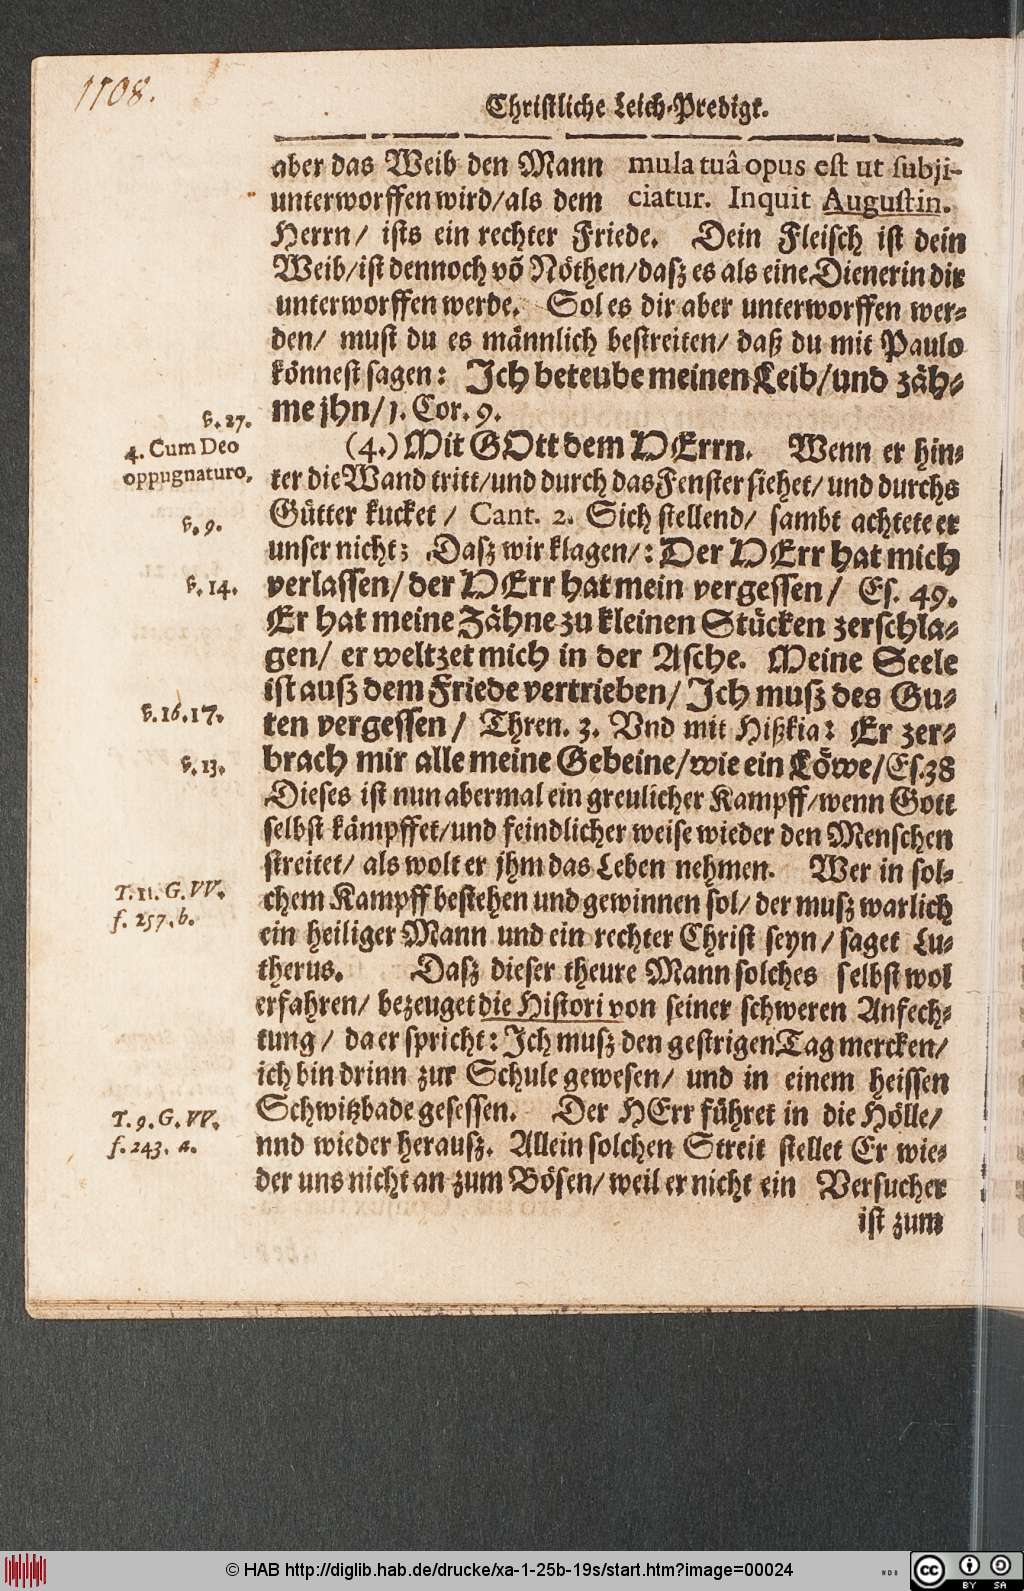 1108.
Christliche Leich-Predigt.
aber das Weib den Mann mula tuâ opus est ut subji-
unterworffen wird/als dem ciatur. Inquit Augustin.
Herrn/ ists ein rechter Friede. Dein Fleisch ist dein
Weib/ist dennoch võ Nöthen/dasz es als eine Dienerin dir
unterworffen werde. Sol es dir aber unterworffen wer-
den/ must du es männlich bestreiten/ daß du mit Paulo
könnest sagen: Ich beteube meinen Leib/und zäh-
me jhn/1. Cor. 9.
v. 27.
(4.) Mit GOtt dem HErrn. Wenn er hin-
4. Cum Deo
oppugnaturo.
ter die Wand tritt/und durch das Fenster siehet/ und durchs
Gütter kucket / Cant. 2. Sich stellend/ sambt achtete er
v. 9.
unser nicht; Dasz wir klagen/: Der HErr hat mich
verlassen/ der HErr hat mein vergessen/ Es. 49.
v. 14.
Er hat meine Zähne zu kleinen Stücken zerschla-
gen/ er weltzet mich in der Asche. Meine Seele
ist ausz dem Friede vertrieben/ Ich musz des Gu-
ten vergessen / Thren. 3. Vnd mit Hißkia: Er zer-
v. 16.17.
brach mir alle meine Gebeine/wie ein Löwe/Es.38
v. 13.
Dieses ist nun abermal ein greulicher Kampff/wenn Gott
selbst kämpffet/und feindlicher weise wieder den Menschen
streitet/ als wolt er jhm das Leben nehmen. Wer in sol-
chem Kampff bestehen und gewinnen sol/ der musz warlich
T. 11. G. VV.
f. 257. b.
ein heiliger Mann und ein rechter Christ seyn/ saget Lu-
therus. Dasz dieser theure Mann solches selbst wol
erfahren/ bezeuget die Histori von seiner schweren Anfech-
tung / da er spricht: Ich musz den gestrigen Tag mercken/
ich bin drinn zur Schule gewesen/ und in einem heissen
Schwitzbade gesessen. Der HErr führet in die Hölle/
T. 9. G. VV.
f. 243. a.
nnd wieder herausz. Allein solchen Streit stellet Er wie-
der uns nicht an zum Bösen/ weil er nicht ein Versucher
ist zum
© HAB http://diglib.hab.de/drucke/xa-1-25b-19s/start.htm?image=00024
cc BY SA